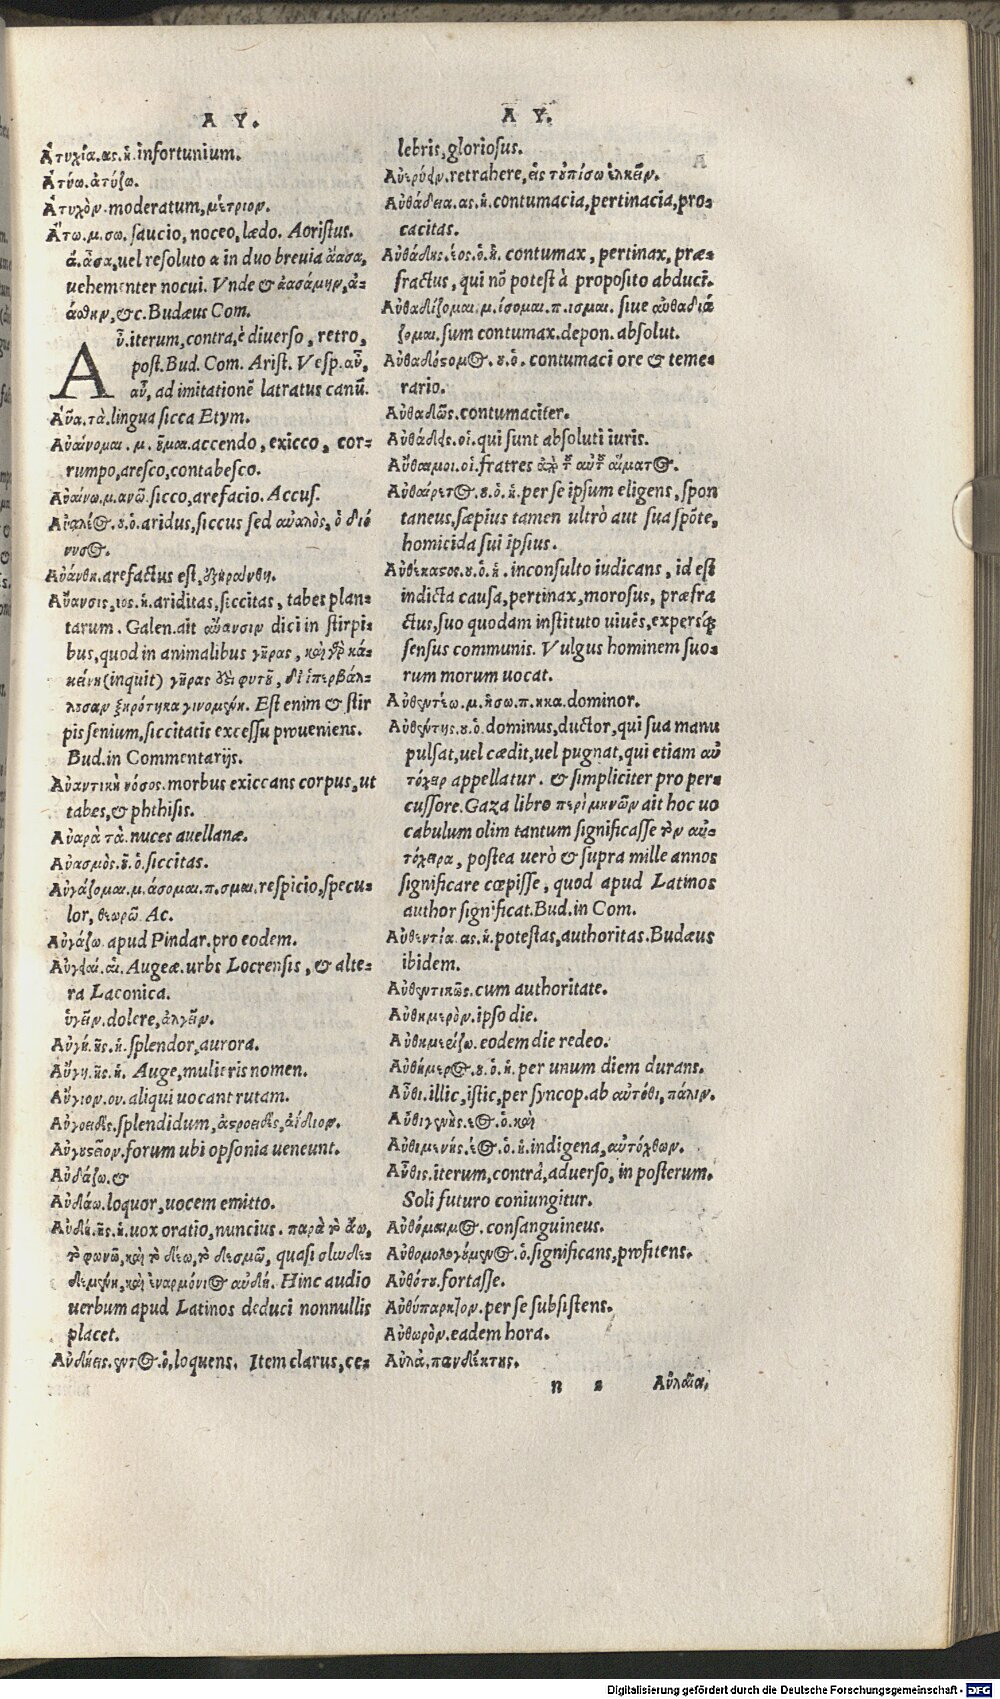 Α Υ.
Ἀτυχία.ας.ἡ.infortunium.
Ἀτύω.ἀτύζω.
Ἀτυχὸν.moderatum,μέτριον.
Ἄτω.μ.σω. saucio, noceo, lædo. Aoristus.
ἄ.ἆσα,uel resoluto α in duo breuia ἄασα,
uehementer nocui. Vnde & ἀασάμην,ἀ-
άσθην,&c.Budæus Com.
Αὖ.iterum,contra,è diuerso, retro,
post. Bud. Com. Arist. Vesp.αὖ,
αὖ, ad imitationē latratus canū.
Αὖα.τὰ.lingua sicca Etym.
Αὐαίνομαι. μ. οῦμαι.accendo, exicco, cor-
rumpo,aresco,contabesco.
Αὐαίνω.μ.ανῶ.sicco,arefacio. Accus.
Αὐαλέος.ου.ὁ.aridus,siccus sed αὐαλὸς, ὁ διό
νυσος.
Αὐάνθη.arefactus est,ἐξηράνθη.
Αὔανσις,ιος.ἡ.ariditas,siccitas, tabes plan-
tarum. Galen.ait αὔανσιν dici in stirpi-
bus,quod in animalibus γῆρας, καὶ γὰρ κά-
κείνη(inquit) γῆρας ἐστι φυτοῦ, δι' ὑπερβάλ-
λουσαν ξηρότητα γινομένη. Est enim & stir
pis senium,siccitatis excessu proueniens.
Bud.in Commentarijs.
Αὐαντικὴ νόσος.morbus exiccans corpus,ut
tabes,& phthisis.
Αὐαρὰ τὰ.nuces auellanæ.
Αὐασμὸς.οῦ.ὁ.siccitas.
Αὐγάζομαι.μ.άσομαι.π.σμαι.respicio,specu-
lor, θεωρῶ. Ac.
Αὐγάζω.apud Pindar.pro eodem.
Αὐγεαί.αἱ. Augeæ.urbs Locrensis, & alte-
ra Laconica.
ὑγεῖν.dolere,ἀλγεῖν.
Αὐγή.ῆς.ἡ.splendor,aurora.
Αὔγη.ης.ἡ. Auge,mulieris nomen.
Αὔγιον.ου.aliqui uocant rutam.
Αὐγοειδὲς.splendidum,ἀστροειδὲς,ἀΐδιον.
Αὐγουστεῖον.forum ubi opsonia ueneunt.
Αὐδάζω.&
Αὐδάω.loquor,uocem emitto.
Αὐδή.ῆς.ἡ.uox oratio,nuncius. παρὰ τὸ ἄω,
τὸ φωνῶ,καὶ τὸ δέω,τὸ δεσμῶ, quasi συνδε-
δεμένη,καὶ ἐναρμόνιος αὐδή. Hinc audio
uerbum apud Latinos deduci nonnullis
placet.
Αὐδήεις.εντος.ὁ.loquens. Item clarus,ce-
Α Υ.
lebris,gloriosus.
Αὐερύειν.retrahere,εἰς τοὐπίσω ἕλκειν.
Αὐθάδεια.ας.ἡ.contumacia,pertinacia,pro-
cacitas.
Αὐθάδης.έος.ὁ.ἡ. contumax, pertinax, præ-
fractus, qui nō potest à proposito abduci.
Αὐθαδίζομαι.μ.ίσομαι.π.ισμαι. siue αὐθαδιά
ζομαι.sum contumax.depon.absolut.
Αὐθαδόστομος.ου.ὁ. contumaci ore & teme-
rario.
Αὐθαδῶς.contumaciter.
Αὐθάδεις.οἱ.qui sunt absoluti iuris.
Αὔθαιμοι.οἱ.fratres ἀπὸ τοῦ αὐτοῦ αἵματος.
Αὐθαίρετος.ου.ὁ.ἡ.per se ipsum eligens, spon
taneus,sæpius tamen ultrò aut sua spōte,
homicida sui ipsius.
Αὐθέκαστος.ου.ὁ.ἡ.inconsulto iudicans, id est
indicta causa,pertinax,morosus, præfra
ctus,suo quodam instituto uiuēs,expersq́;
sensus communis. Vulgus hominem suo-
rum morum uocat.
Αὐθεντέω.μ.ήσω.π.ηκα.dominor.
Αὐθέντης.ου.ὁ.dominus,ductor,qui sua manu
pulsat,uel cædit,uel pugnat,qui etiam αὐ
τόχειρ appellatur. & simpliciter pro per-
cussore.Gaza libro περὶ μηνῶν ait hoc uo
cabulum olim tantum significasse τὸν αὐ-
τόχειρα, postea uerò & supra mille annos
significare cœpisse, quod apud Latinos
author significat.Bud.in Com.
Αὐθεντία.ας.ἡ.potestas,authoritas.Budæus
ibidem.
Αὐθεντικῶς.cum authoritate.
Αὐθημερὸν.ipso die.
Αὐθημερίζω.eodem die redeo.
Αὐθήμερος.ου.ὁ.ἡ. per unum diem durans.
Αὖθι.illic,istic,per syncop.ab αὐτόθι,πάλιν.
Αὐθιγενὴς.έος.ὁ.καὶ
Αὐθιμενής.έος.ὁ.ἡ.indigena,αὐτόχθων.
Αὖθις.iterum,contrà,aduerso, in posterum.
Soli futuro coniungitur.
Αὐθόμαιμος.consanguineus.
Αὐθομολογούμενος.ὁ.significans,profitens.
Αὐθότου.fortasse.
Αὐθύπαρκτον.per se subsistens.
Αὐθωρὸν.eadem hora.
Αὐλά.πανδέκτης.
n 2 Αὐλαία.
Digitalisierung gefördert durch die Deutsche Forschungsgemeinschaft - DFG